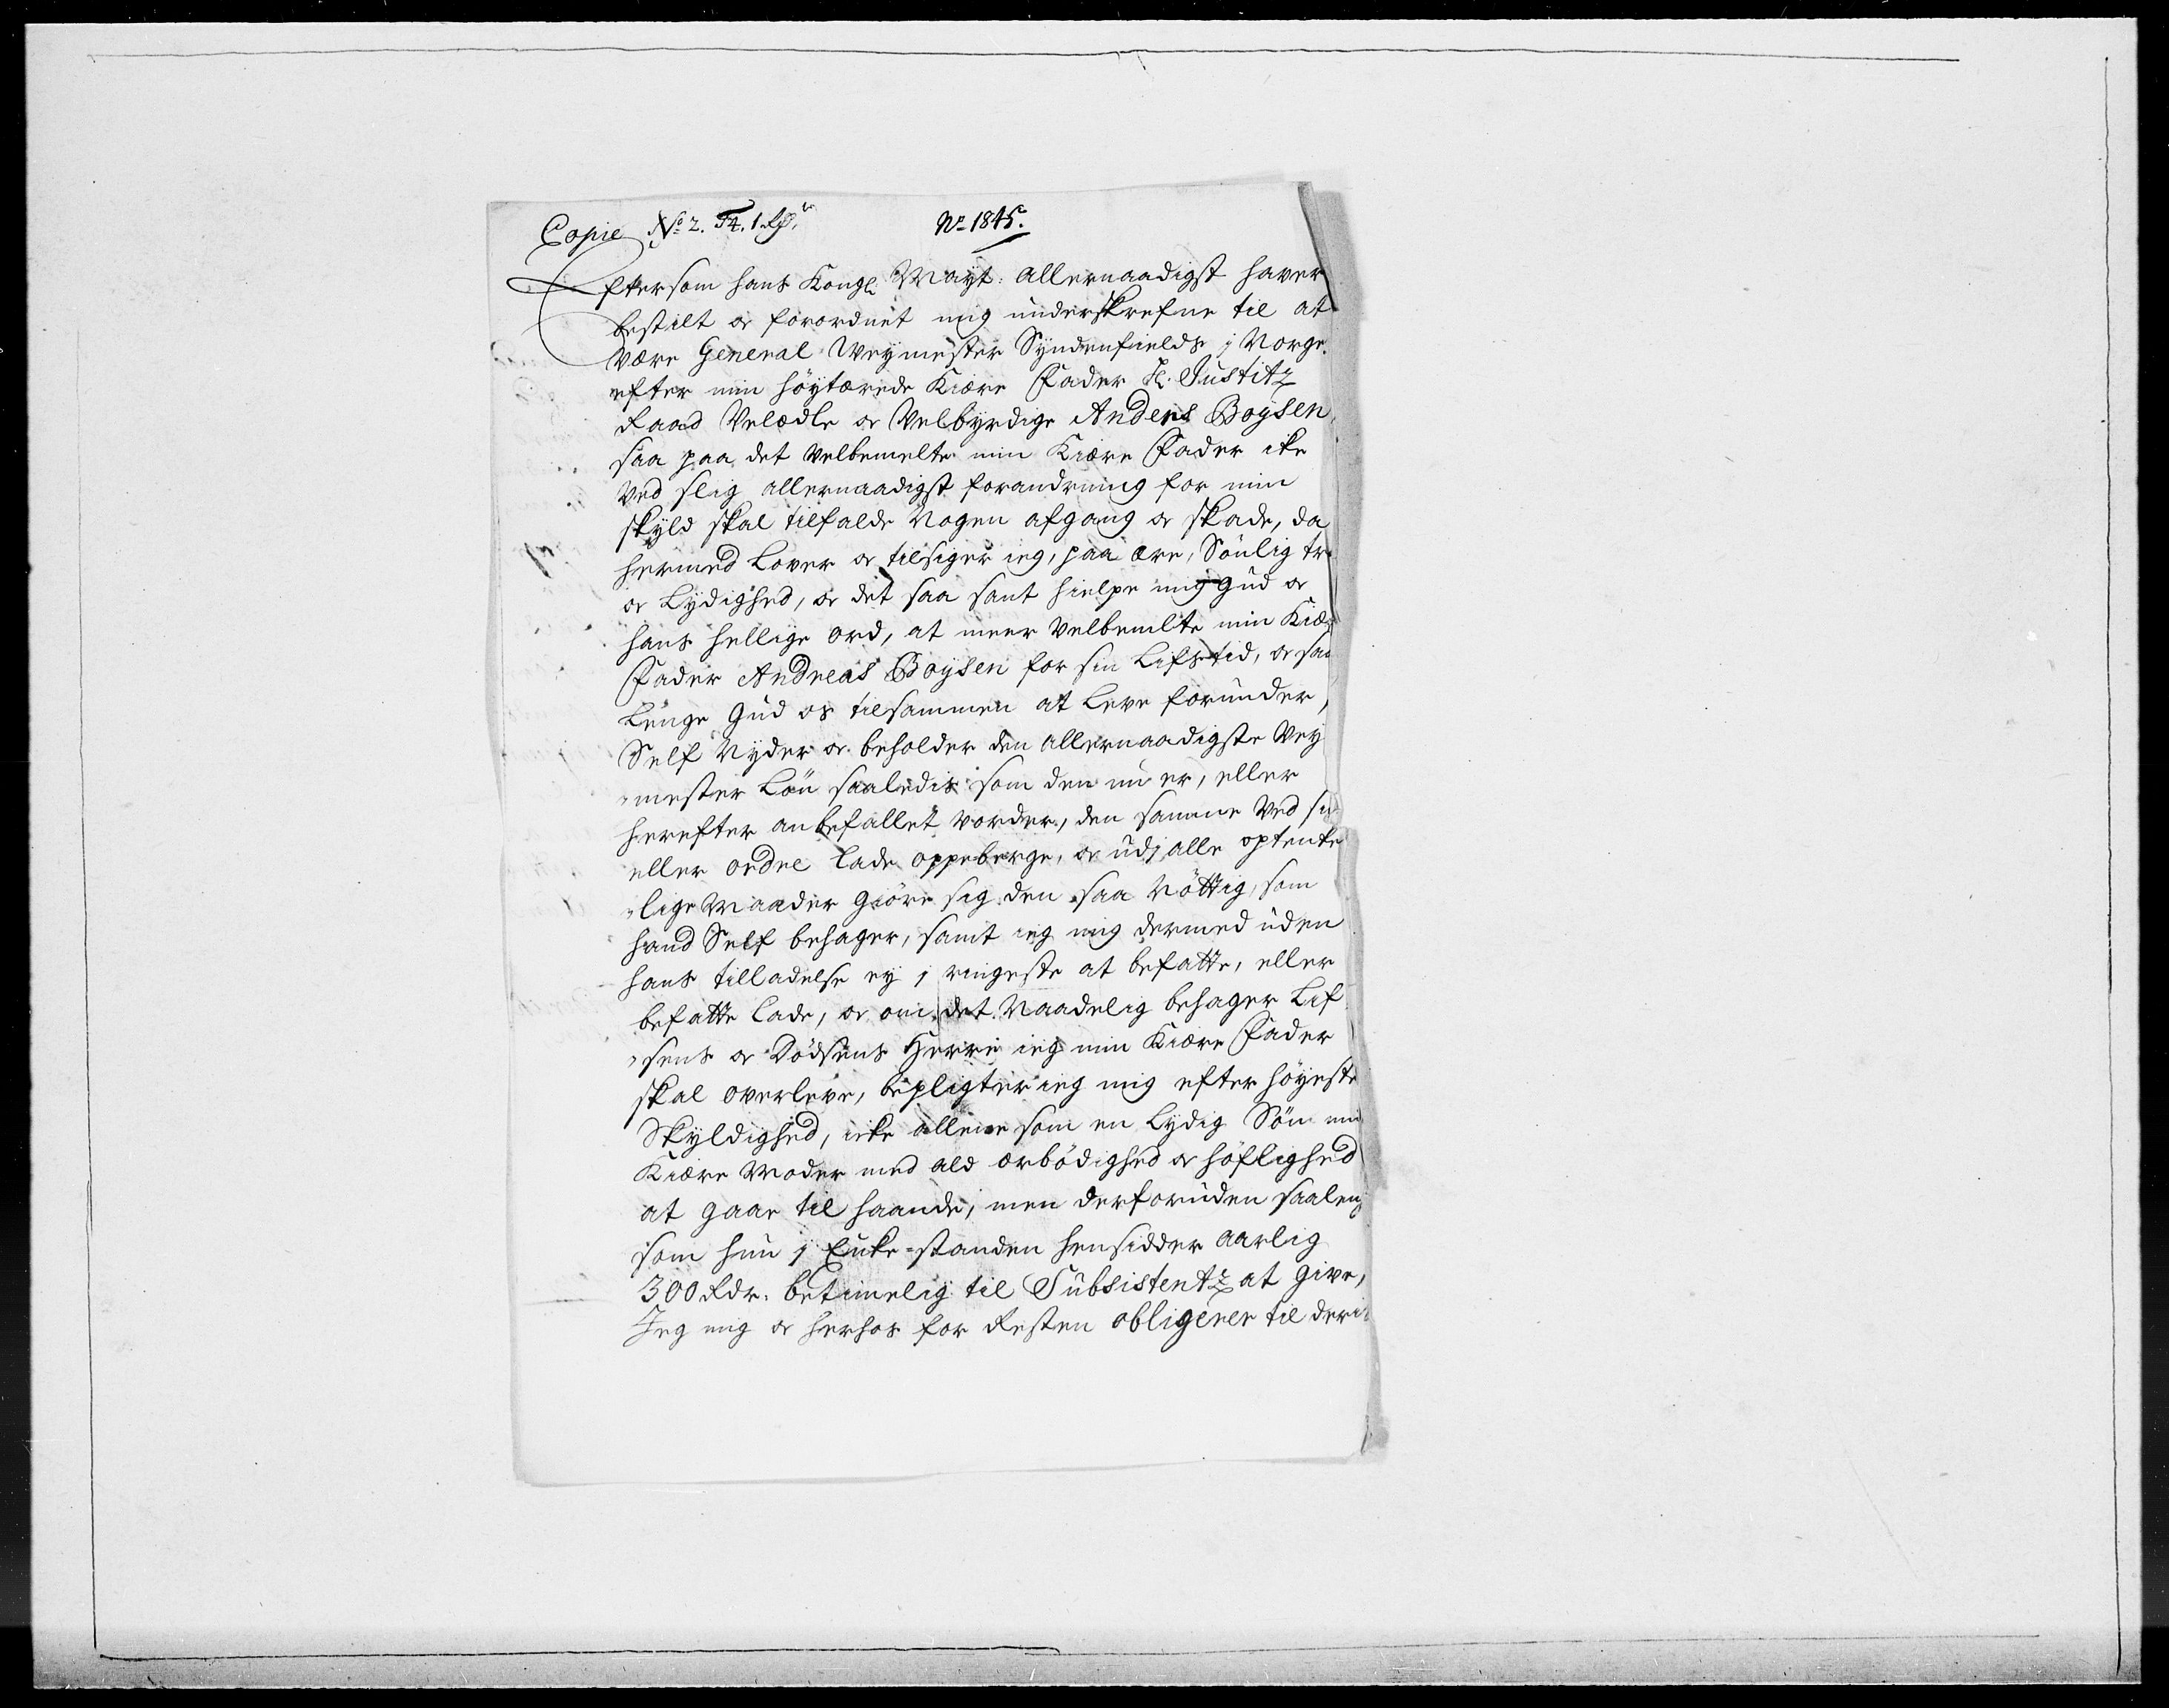 Copie No 2. 24. 1 Rdr.
No 1845.
Eftersom hans Kongl: Mayt: allernaadigst haver
bestilt or forordnet mig underskrefne til at
være General Weymester Syndenfields j Norge
efter min höytærede Kiære Fader H. Justitz
Raad Velædle or Velbyrdige Anders Boysen,
saa paa det velbemelte min Kiære Fader ike
ved slig allernaadigst forandring for min
skyld skal tilfalde Nogen afgang or skade, da
hermed Lover or tilsiger ieg, paa ære, Sönlig tr
or Lydighed, or det saa sant hielpe mig Gud or
hans hellige ord, at meer velbemelte min Kiæ
Fader Andreas Boysen for sin Lifstid, or saa
Lenge Gud os tilsammen at Leve forunder,
Self Nyder or beholder den allernaadigste Vey
mester Lön saaledis som den nu er, eller
herefter anbefallet vorder, den samme ved sig
eller ordre lade oppeberge, or udj alle optenke
lige Maader Giöre sig den saa Nöttig, som
hand Self behager, samt ieg mig dermed uden
hans tilladelse ey j ringeste at befatte, eller
befatte lade, or om det Naadelig behager Lif
sens or Dödsens Herre ieg min Kiære Fader
skal overleve, bepligter ieg mig efter höyeste
Skyldighed, icke allene som en Lydig Sön min
Kiære Moder med ald ærbödighed or höflighed
at gaae til haande, men derforuden saaleng
som hun j Enke-standen hensidder aarlig
300 Rdr. betimelig til Subsistentz at give,
Jeg mig or herhos for Resten obligerer til deri